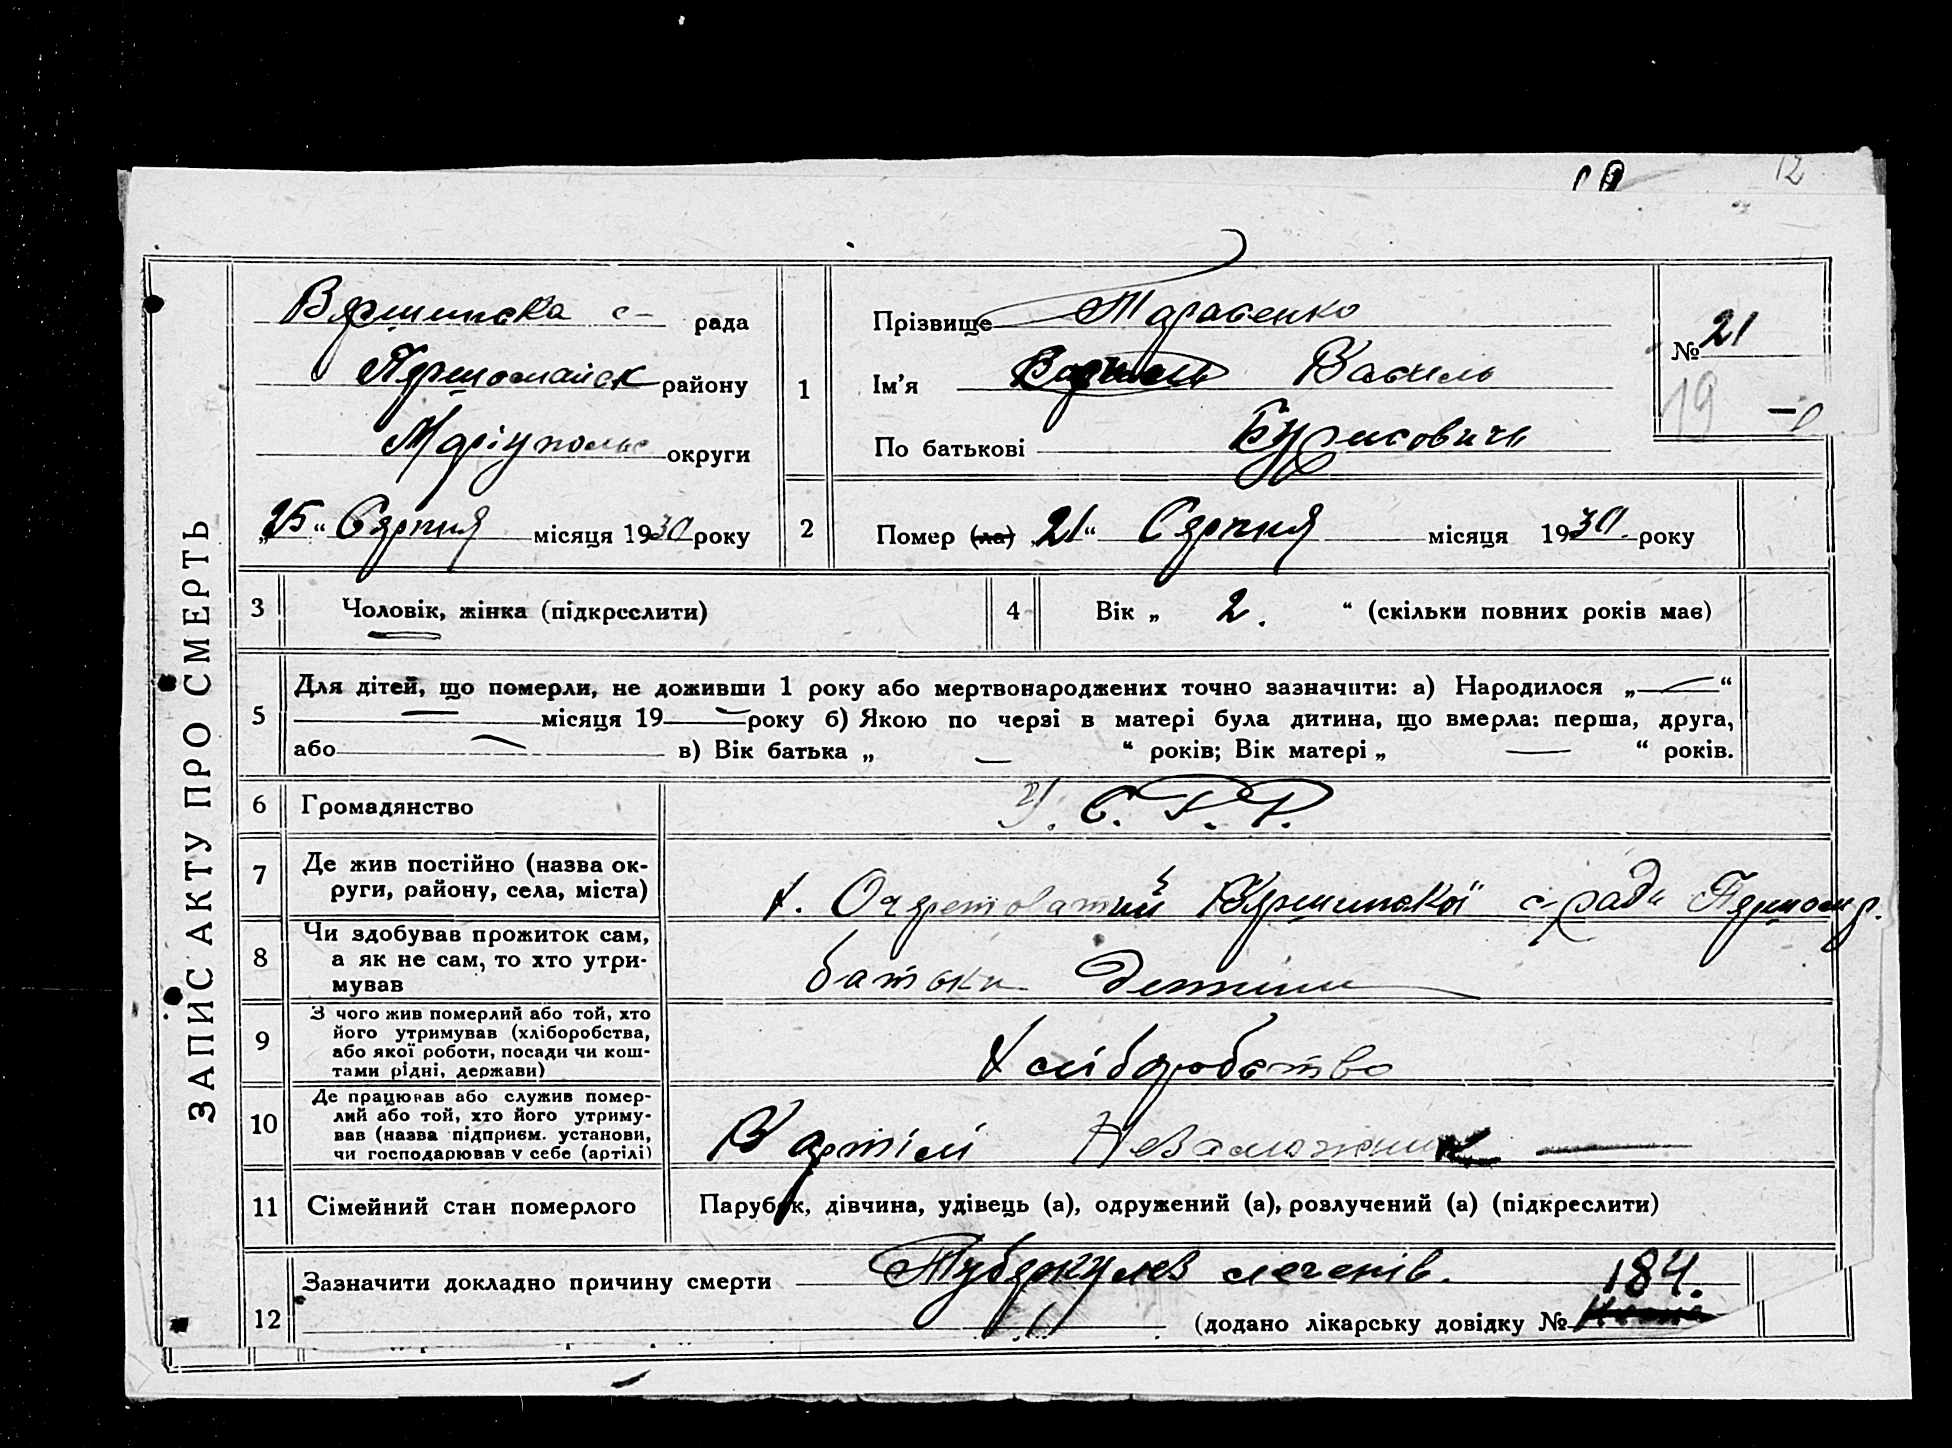 12
ЗАПИС АКТУ ПРО СМЕРТЬ
Вершинська с- рада
Першомайск району
Маріупольс округи
„25“ Серпня місяця 1930 року
1
Прізвище Тарасенко
Ім’я Василь
По батькові Бурисовичь
№ 21
19
2
Помер (ла) „21“ Серпня місяця 1930. року
3
Чоловік, жінка (підкреслити)
4
Вік „ 2. “ (скільки повних років має)
5
Для дітей, що померли, не доживши 1 року або мертвонароджених точно зазначити: а) Народилося „—“
— місяця 19— року б) Якою по черзі в матері була дитина, що вмерла: перша, друга,
або — в) Вік батька „ — “ років; Вік матері „ — “ років.
6
Громадянство
У. С. Р. Р.
7
Де жив постійно (назва ок-
руги, району, села, міста)
х. Очеретоватий Вершинської с-ради Першом р.
8
Чи здобував прожиток сам,
а як не сам, то хто утри-
мував
батьки
9
З чого жив померлий або той, хто
його утримував (хліборобства,
або якої роботи, посади чи кош-
тами рідні, держави)
Хліборобство
10
Де працював або служив помер-
лий або той, хто його утриму-
вав (назва підприєм. установи,
чи господарював у себе (артілі)
В артілі Незаможник —
11
Сімейний стан померлого
Парубок, дівчина, удівець (а), одружений (а), розлучений (а) (підкреслити)
12
Зазначити докладно причину смерти Туберкулез легенів.
184.
(додано лікарську довідку №